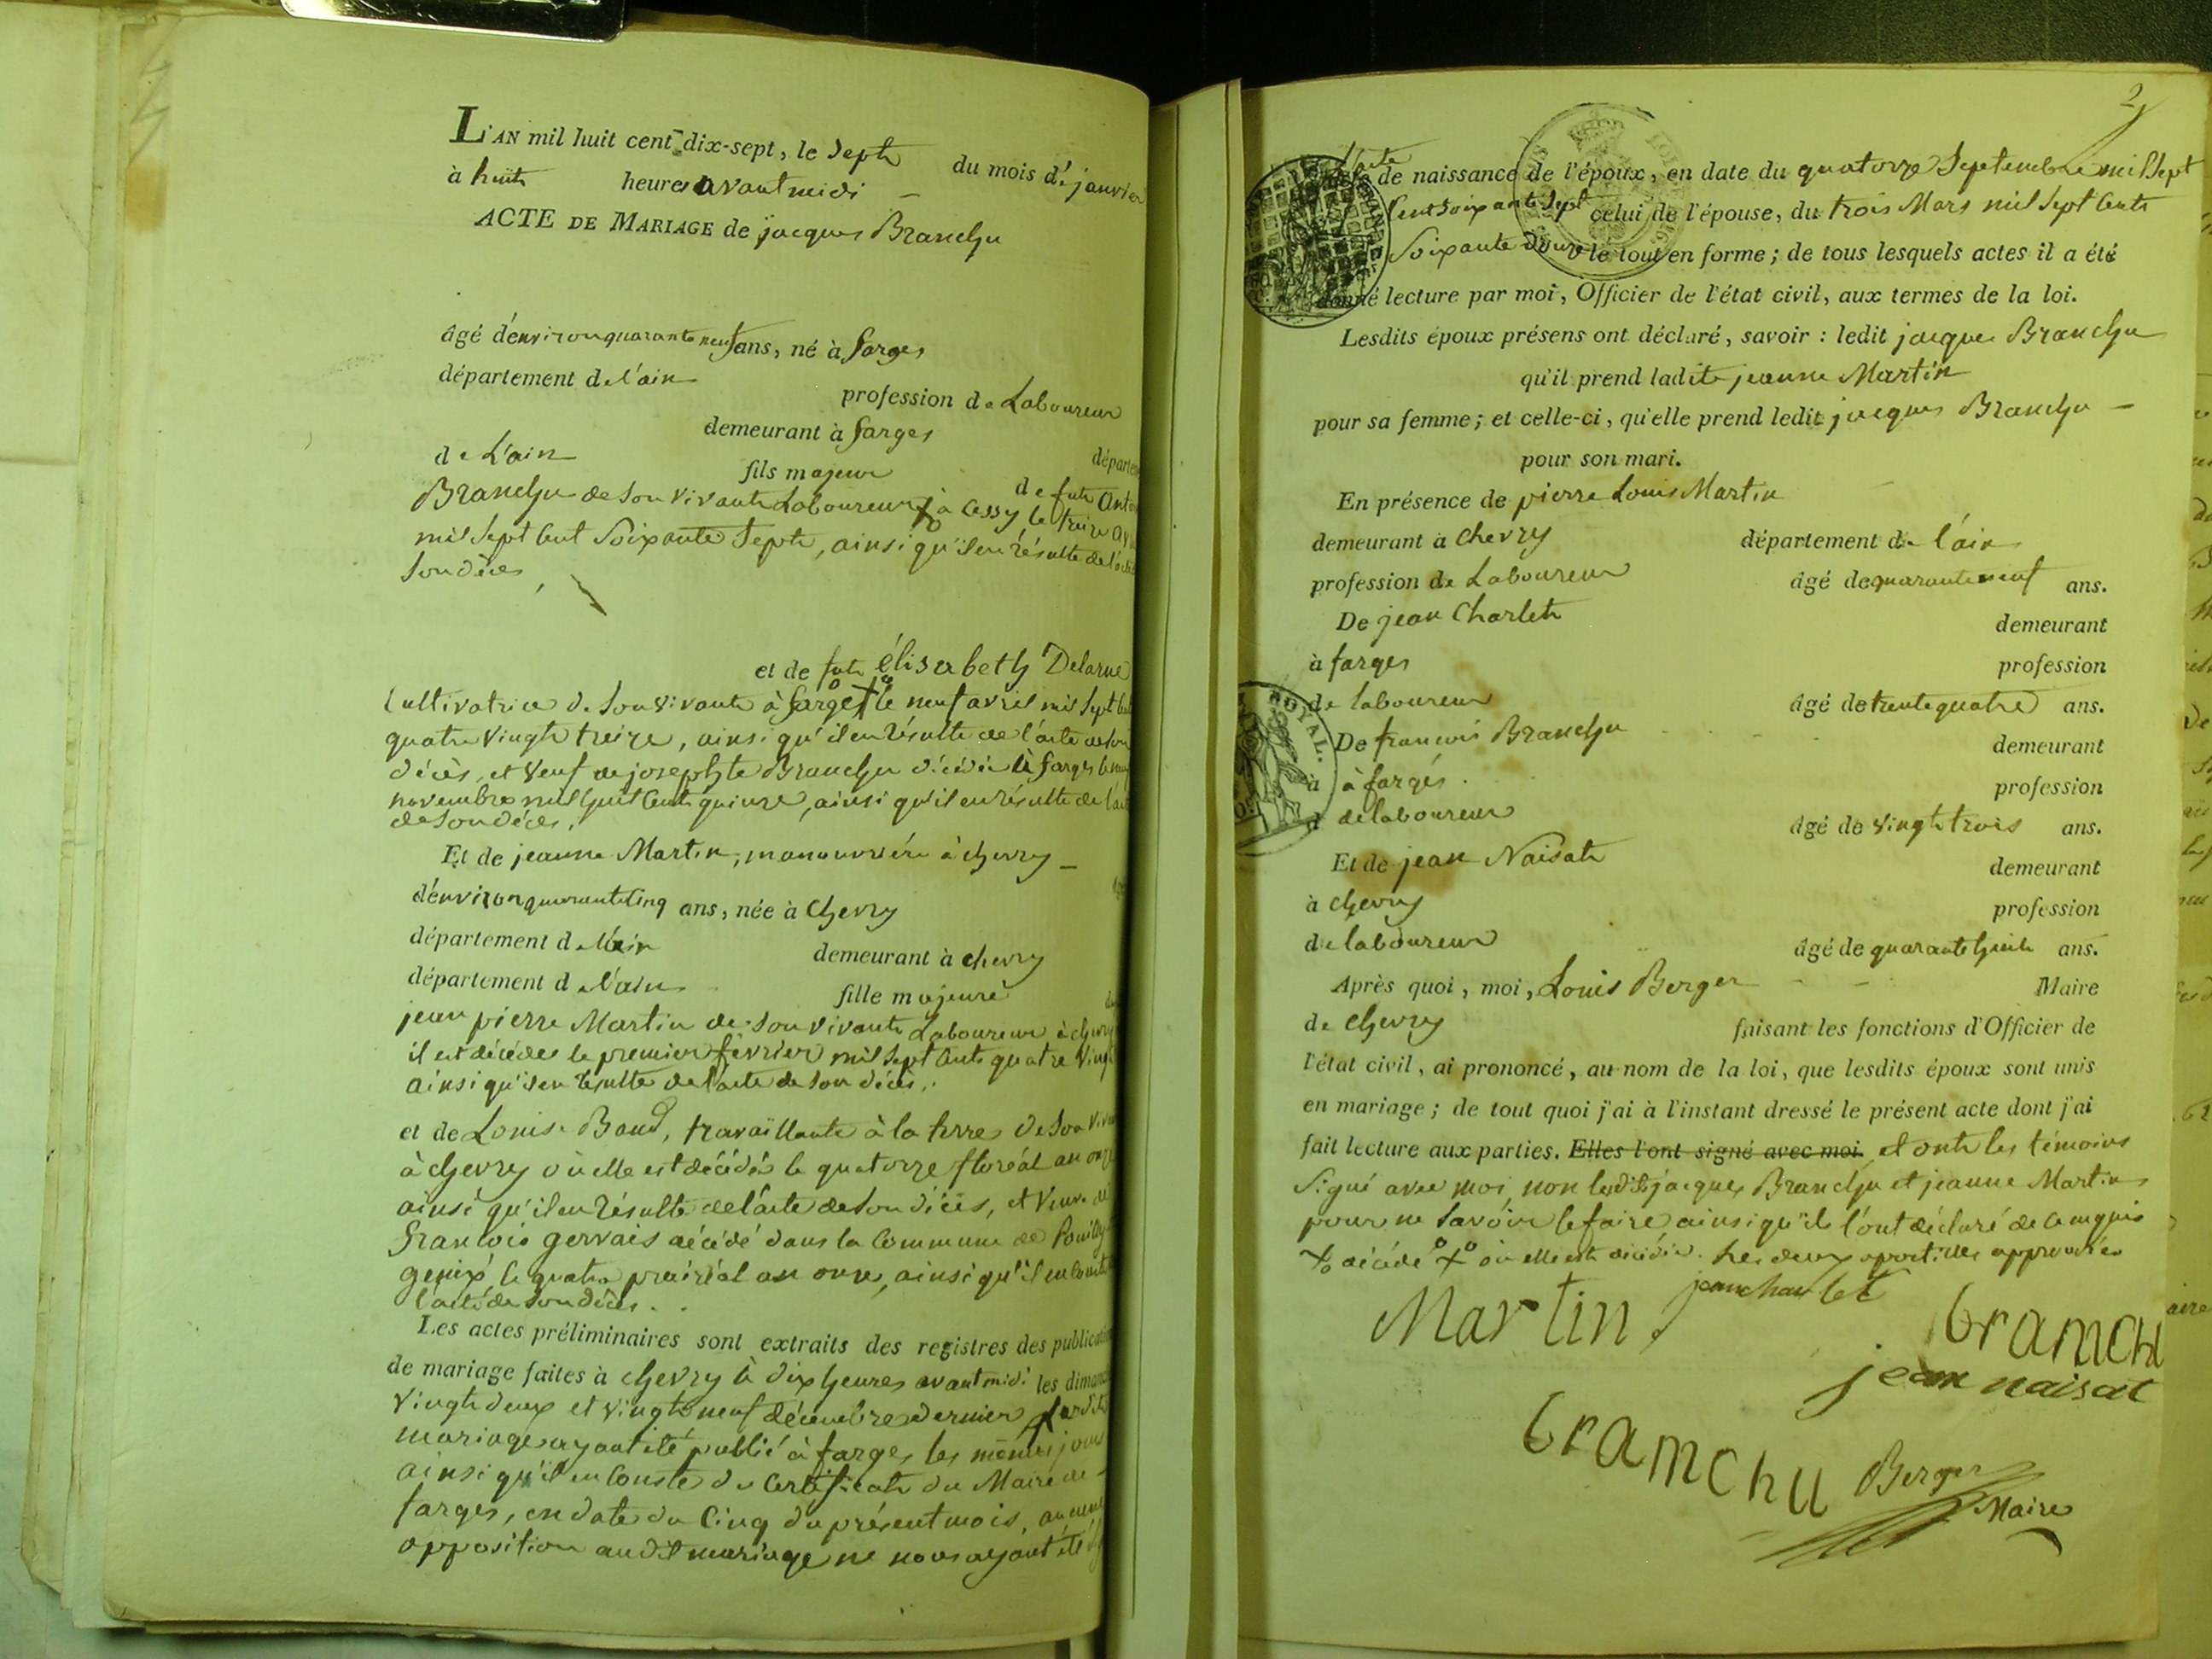 L'AN mil huit cent dix-sept, le Sept du mois de janvier
à huit heures avant midi
ACTE DE MARIAGE de jacques Branchu
âgé d'environ quarante neuf ans, né à farges
département de l'ain profession de Laboureur
demeurant à farges départem
de L'ain fils majeur de fut Anto
Branchu de Son Vivant Laboureur à Cessy le treize
mil Sept Cent Soixante Sept, ainsi qu'il en résulte de l'acte
Son décès
et de fute élisabeth Delarue
Cultivatrice de Son Vivant à farges le neuf avril mil Sept
quatre Vingt treize, ainsi qu'il en résulte de l'acte de Son
décès, et Veuf de josephte Branchu décédée à farges le
novembre mil huit Cent quinze, ainsi qu'il en résulte de l'acte
de Son décès,
Et de jeanne Martin, manouvrière à chevry
d'environ quarante Cinq ans, née à Chevry
département de l'ain demeurant à chevry
département de l'ain fille majeure
jean pierre Martin de Son Vivant Laboureur à chevry
il est décédés le premier février mil Sept Cent quatre Vingt
ainsi qu'il en résulte de l'acte de Son décès.
et de Louise Baud, travaillante à la terre de Son Vivant
à chevry où elle est décédée le quatorze floréal an onze
ainsi qu'il en résulte de l'acte de Son décès, et Veuve de
françois gervais décédé dans la Commune de Pouilly
genix, le quatre prairéal an onze, ainsi qu'il en
l'acte de Son décès.
Les actes préliminaires sont extraits des registres des publications
de mariage faites à chevry à dix heures avant midi les dimanc
Vingt deux et Vingt neuf décembre dernier
mariage ayant été publié à farges les mêmes jours
ainsi qu'il en Conste du Certificat du Maire de
farges, en date du Cinq du présent mois, aucune
opposition audit mariage ne nous ayant été
2
l'acte de naissance de l'époux, en date du quatorze Septembre mil Sept
Cent Soixante Sept celui de l'épouse, du trois Mars mil Sept Cent
Soixante douze le tout en forme; de tous lesquels actes il a été
donné lecture par moi, Officier de l'état civil, aux termes de la loi.
Lesdits époux présens ont déclaré, savoir : ledit jacques Branchu
qu'il prend ladite jeanne Martin
pour sa femme; et celle-ci, qu'elle prend ledit jacques Branchu
pour son mari.
En présence de pierre Louis Martin
demeurant à Chevry département de l'ain
profession de Laboureur âgé de quarante neuf ans.
De jean Charlet demeurant
à farges profession
de laboureur âgé de trente quatre ans.
De françois Branchu demeurant
à à farges profession
d de laboureur âgé de Vingt trois ans.
Et de jean Naisat demeurant
à chevry profession
de laboureur âgé de quarante huit ans.
Après quoi, moi, Louis Berger Maire
de Chevry faisant les fonctions d'Officier de
l'état civil, ai prononcé, au nom de la loi, que lesdits époux sont unis
en mariage; de tout quoi j'ai à l'instant dressé le présent acte dont j'ai
fait lecture aux parties. Elles l'ont signé avec moi et ont les témoins
Signé avec moi non lesdits jacques Branchu et jeanne Martin
pour ne Savoir le faire ainsi qu'ils l'ont déclaré de ce enquis
décédé où elle est décédée. Les deux apostilles approuvées
Martin jean charlet
bramchu
jean naisat
bramchu Berger
Maire
ROYAL